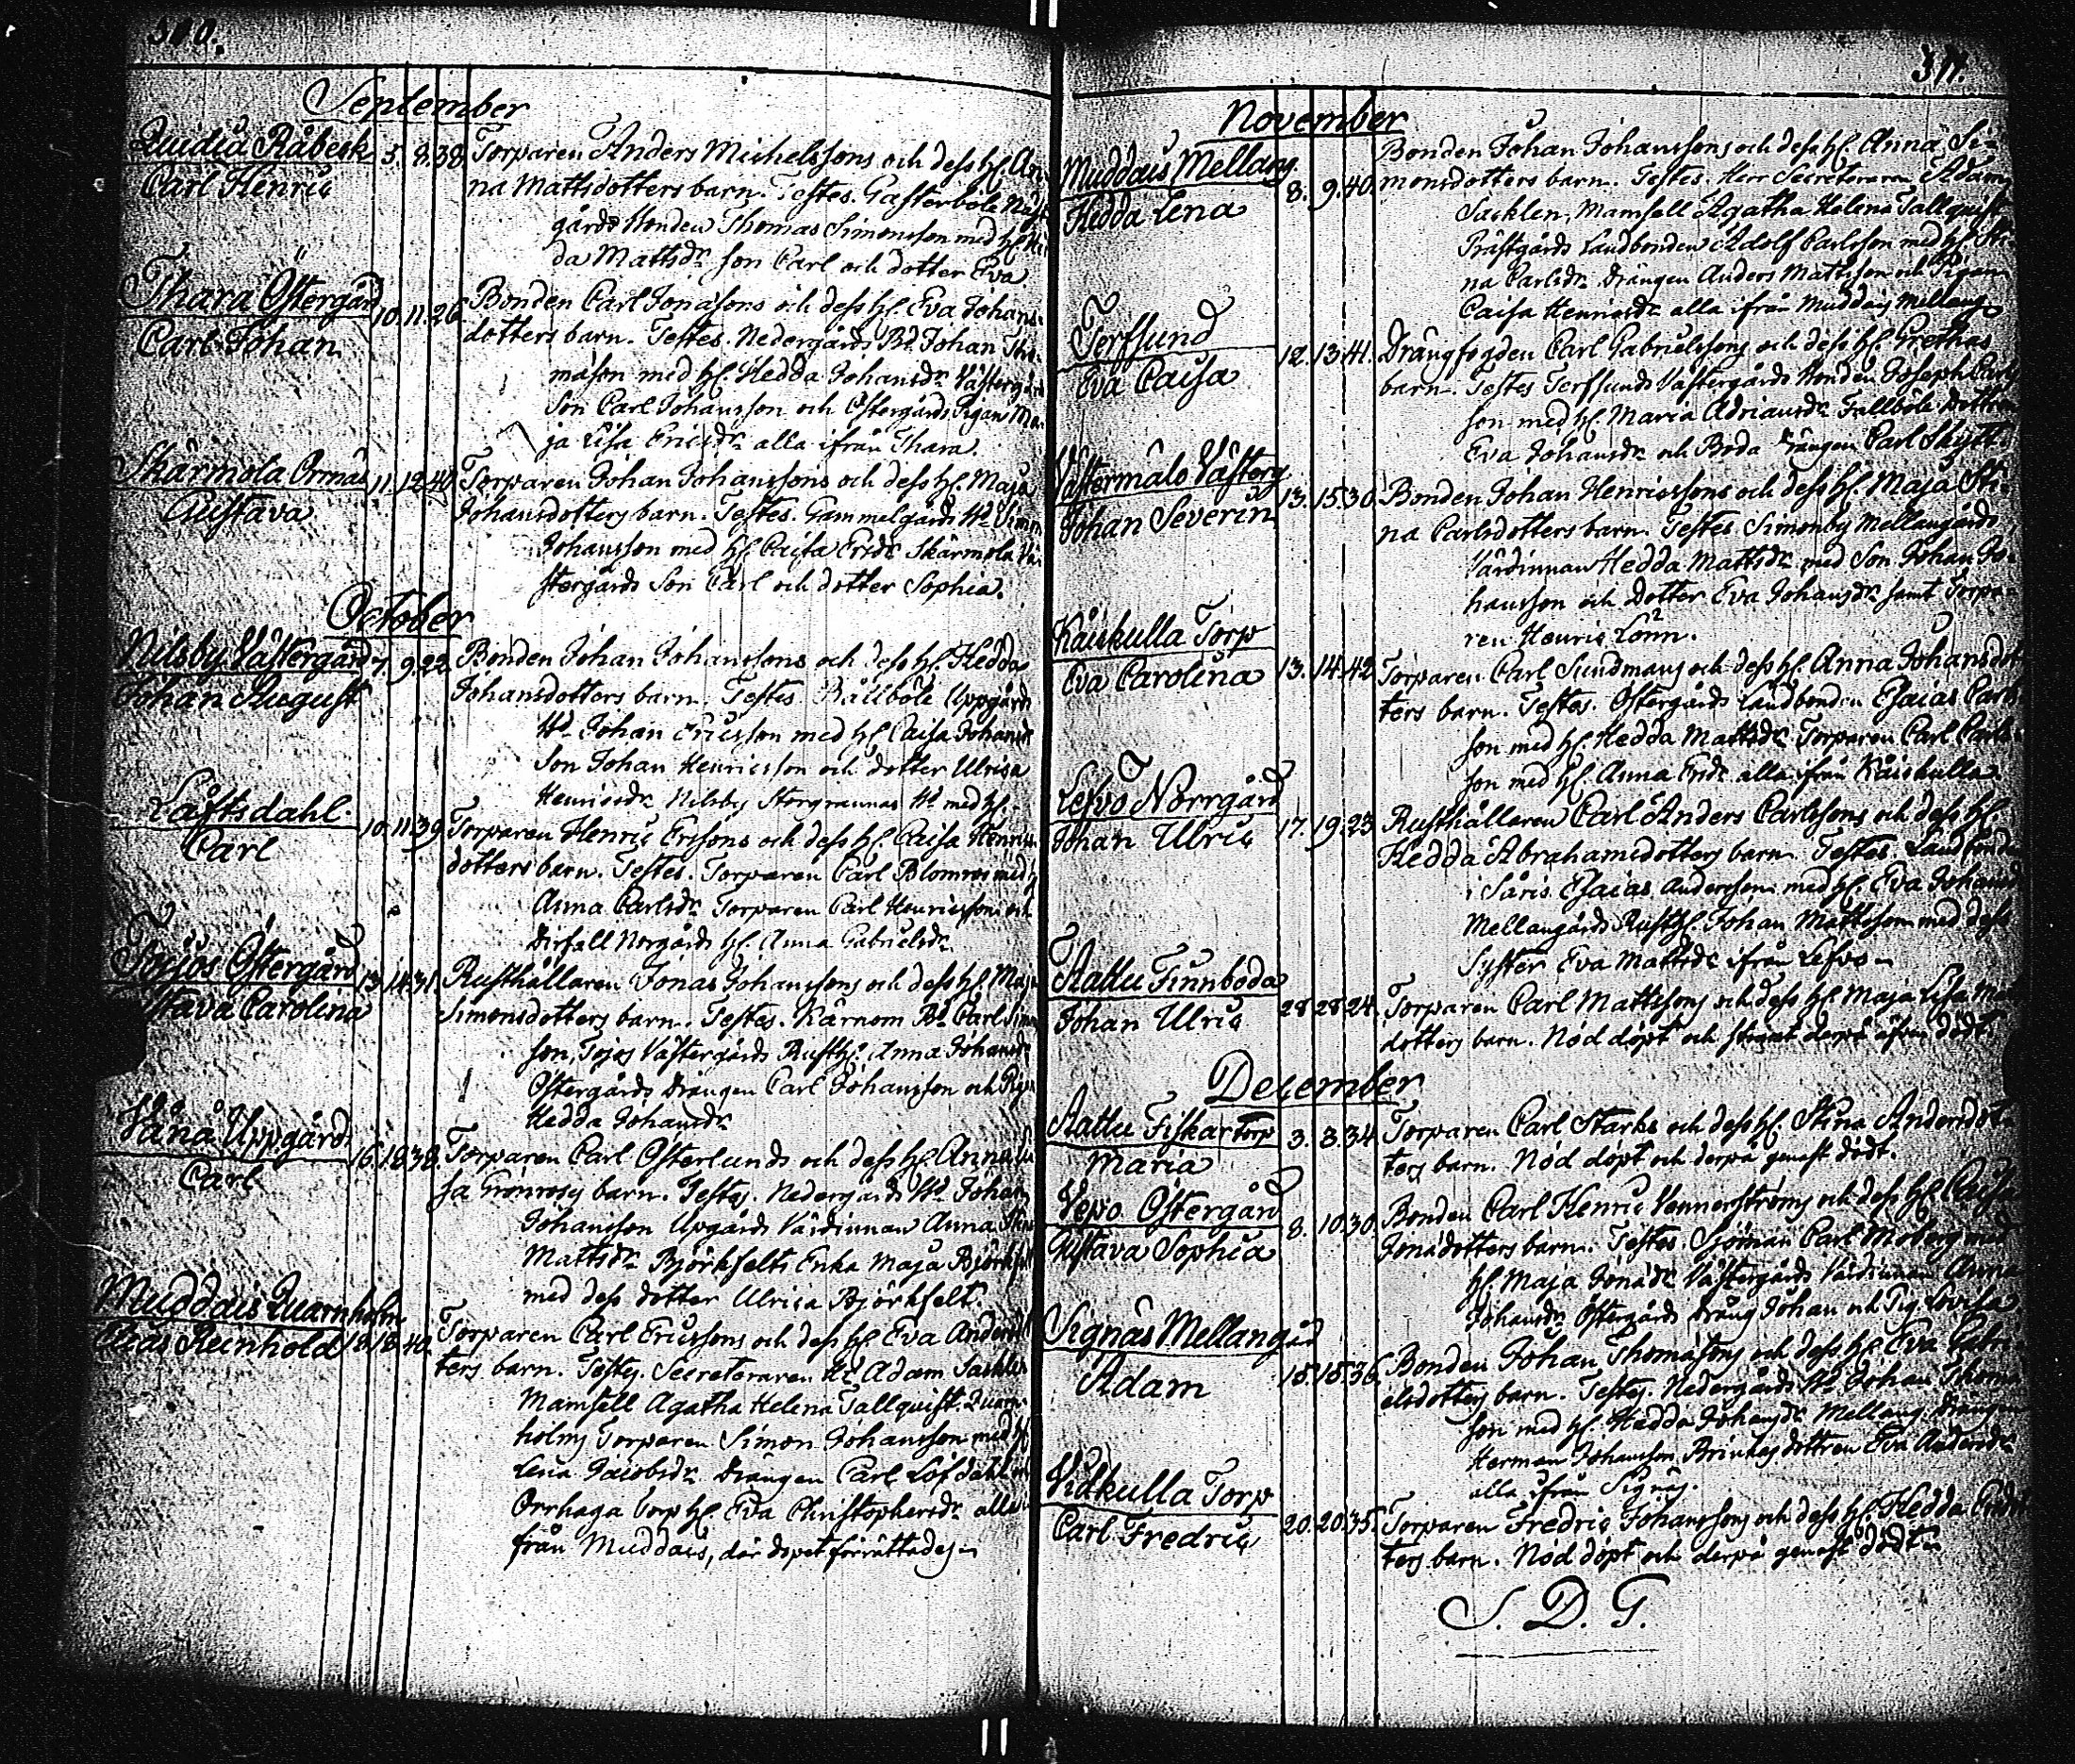 310.
September
Quidia Råbeck 5. 8. 38. Torparen Anders Michelssons och dess h. An-
Carl Henric na Mattsdotters barn. Testes. Gasterböle
gårds Honden Thomas Simonsson med h.
da Mattsdr son Carl och dotter Eva
Thara Östergård 10. 11. 26. Bonden Carl Jonasons och dess h. Eva Johans-
Carl Johan dotters barn. Testes. Nedergårds Bd Johan Tho-
mason med h. Hedda Johansdr Västergårds
Son Carl Johansson och Östergårds Pigan Ma-
ja Lisa Ericsdr alla ifrån Thara.
Skärmola Ormnäs 11. 12. 40. Torparen Johan Johanssons och dess h. Maja
Gustava Johansdotters barn. Testes. Gammelgårds Hd Simon
Johansson med h. Caisa Ersdr Skärmola Vä-
stergårds Son Carl och dotter Sophia.
October
Nilsby Västergård 7. 9. 22. Bonden Johan Johanssons och dess h. Hedda
Johan August Johansdotters barn. Testes Bållböle Uppgårds
Hd Johan Ericsson med h. Caisa Johansdr
Son Johan Henricsson och dotter Ulrica
Henricsdr Nilsby Storgrannas Hd med h.
Låftsdahl 10. 11. 39. Torparen Henric Erssons och dess h. Caisa Henrics-
Carl dotters barn. Testes. Torparen Carl Blomros med h
Anna Carlsdr Torparen Carl Henricsson och
Norgårds h. Anna Gabrielsdr
Tojos Östergård 13. 14. 31. Rusthållaren Jonas Johanssons och dess h. Maja
stava Carolina Simonsdotters barn. Testes. Kärnom Bd Carl Simon
son, Tojos Västergårds Rusth. Anna Johansdr
Östergårds Drängen Carl Johansson och Pigan
Hedda Johansdr
Vånå Uppgård 16. 18. 38. Torparen Carl Österlunds och dess h. Anna Li
Carl sa Grönroos barn. Testes. Nedergårds Hd Johan
Johansson Upgårds Värdinnan Anna Stina
Mattsdr Björkfelts Enka Maja Björkfelt
med dess dotter Ulrica Björkfelt.
Muddais Quarnholm
Elias Reinhold 18. 18. 40. Torparen Carl Ericssons och dess h. Eva Andersdot
ters barn. Testes. Secreteraren Hr Adam Sacklen
Mamsell Agatha Helena Tallquist. Quarn-
holms Torparen Simon Johansson med h
Lena Jacobsdr Drängen Carl Löfdahl och
Orrhaga Torp h. Eva Christophersdr alla
från Muddais, där dopet förrättades
311.
November
Muddais Mellang. 8. 9. 40. Bonden Johan Johanssons och dess h. Anna Si-
Hedda Lena monsdotters barn. Testes. Herr Secreteraren Adam
Sacklen, Mamsell Agatha Helena Tallquist,
Prästgårds Landbonden Adolf Carlsson med h. Sti-
na Carlsdr Drängen Anders Mattsson och Pigan
Caisa Henricsdr alla ifrån Muddais Mellang.
Terfsund 12. 13. 41. Drängfogden Carl Gabrielssons och dess h. Grethas
Eva Caisa barn. Testes Terfsunds Västergårds Honden Joseph Carls
son med h. Maria Adriansdr Tallböle Dottren
Eva Johansdr och Boda Drängen Carl Skytt.
Västermälo Västerg 13. 15. 30. Bonden Johan Henricssons och dess h. Maja Sti-
Johan Severin na Carlsdotters barn. Testes Simonby Mellangårds
Värdinnan Hedda Mattsdr med Son Johan Jo-
hansson och Dotter Eva Johansdr samt Torpa-
ren Henric Lönn.
Kåiskulla Torp 13. 14. 42. Torparen Carl Sundmans och dess h. Anna Johansdot
Eva Carolina ters barn. Testes. Östergårds Landbonden Esaias Carls
son med h. Hedda Mattsdr Torparen Carl Carls-
son med h. Anna Ersdr alla ifrån Kåiskulla
Lefvo Norrgård 17. 19. 23. Rusthållaren Carl Anders Carlssons och dess h.
Johan Ulric Hedda Abrahamsdotters barn. Testes Landbonden
i Såris Esaias Andersson med h. Eva Johansdr
Mellangårds Rusth. Johan Mattsson med dess
Syster Eva Mattsdr ifrån Lefvo
Aattu Finnboda 28. 28. 24. Torparen Carl Mattssons och dess h. Maja Lisa
Johan Ulric dotters barn. Nöd döpt och straxt derpå afven dödt.
December
Aattu Fiskartorp 3. 3. 34. Torparen Carl Starks och dess h. Stina Andersdot-
Maria ters barn. Nöd döpt och derpå genast dödt.
Vepo Östergård 8. 10. 30. Bonden Carl Henric Vennerströms och dess h. Caisa
Gustava Sophia Jonasdotters barn. Testes. Sjöman Carl Moberg med
h. Maja Jonasdr Västergårds Värdinnan Anna
Johansdr Östergårds Dräng Johan och Pig. Lovisa
Signäs Mellangård 15. 15. 36. Bonden Johan Thomasons och dess h. Eva Gabri
Adam elsdotters barn. Testes. Nedergårds Hd Johan Thoma
son med h. Hedda Johansdr Mellang. Drängen
Herman Johansson Brinkas dottren Eva Andersdr
alla ifrån Signäs.
Vidkulla Torp 20. 20. 35. Torparen Fredric Johanssons och dess h. Hedda
Carl Fredric ters barn. Nöd döpt och derpå genast dödt
S. D. G.